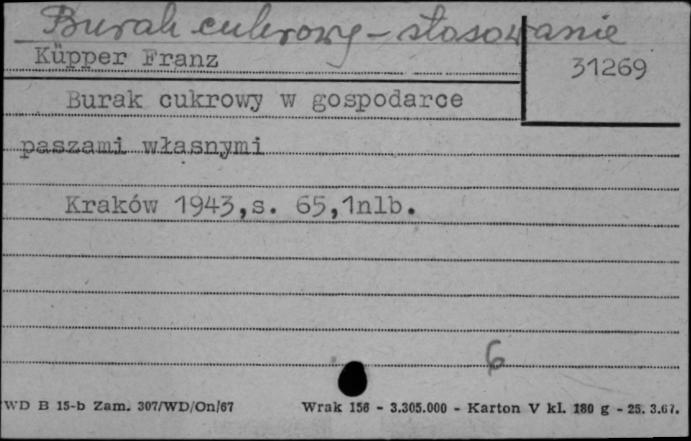 Burak cukrowy – stosowanie
Küpper Franz
31269
Burak cukrowy w gospodarce
paszami własnymi
Kraków 1943,s. 65,1nlb.
6
WD B 15-b Zam. 307/WD/On/67 Wrak 156 - 3.305.000 - Karton V kl. 180 g - 25. 3.67.